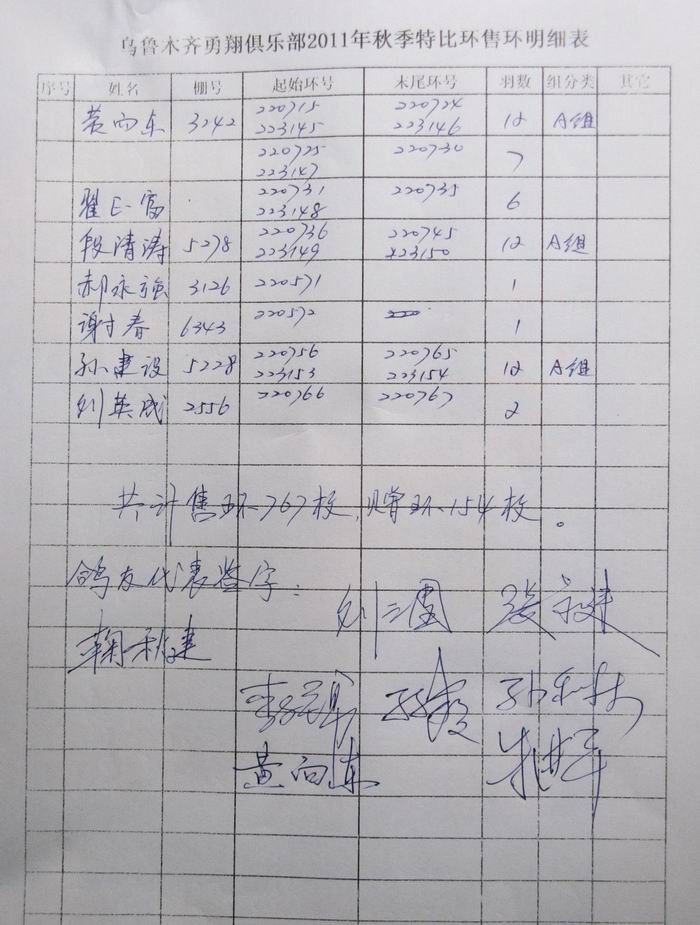 乌鲁木齐勇翔俱乐部2011年秋季特比环售环明细表
序号 姓名 棚号 起始环号 末尾环号 羽数 组分类 其它
黄向东 3242 220715 220724 12 A组
223145 223146
220725 220730 7
223147
翟 富 220731 220735 6
223148
段清涛 5278 220736 220745 12 A组
223149 223150
郝永强 3126 220571 1
谢才春 6343 220572 1
孙建设 5228 220756 220765 12 A组
223153 223154
刘英成 2556 220766 220767 2
共计售环767枚,赠环154枚。
鸽友代表签字:
黄向东